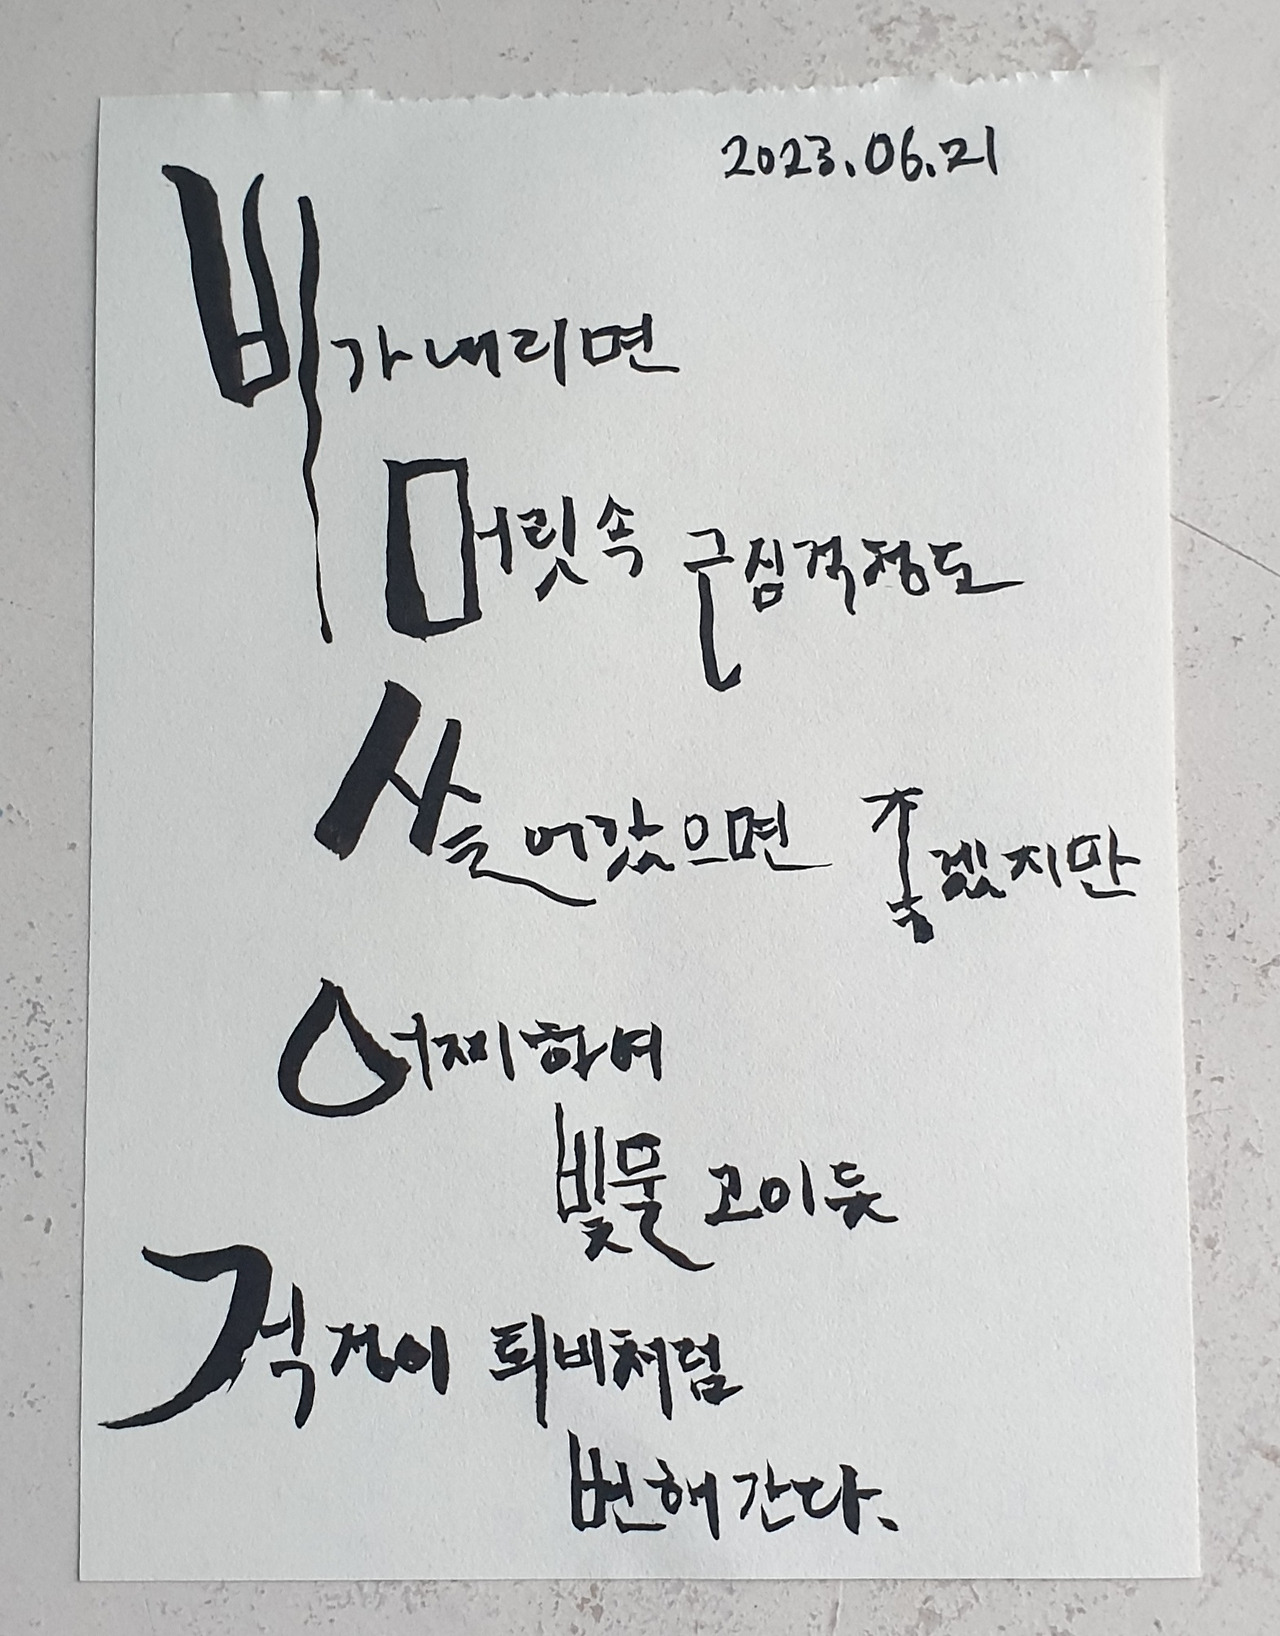 2023.06.21
비가 내리면
머릿속 근심걱정도
쓸어갔으면 좋겠지만
어찌하여
빗물 고이듯
걱정이 퇴비처럼
변해간다.